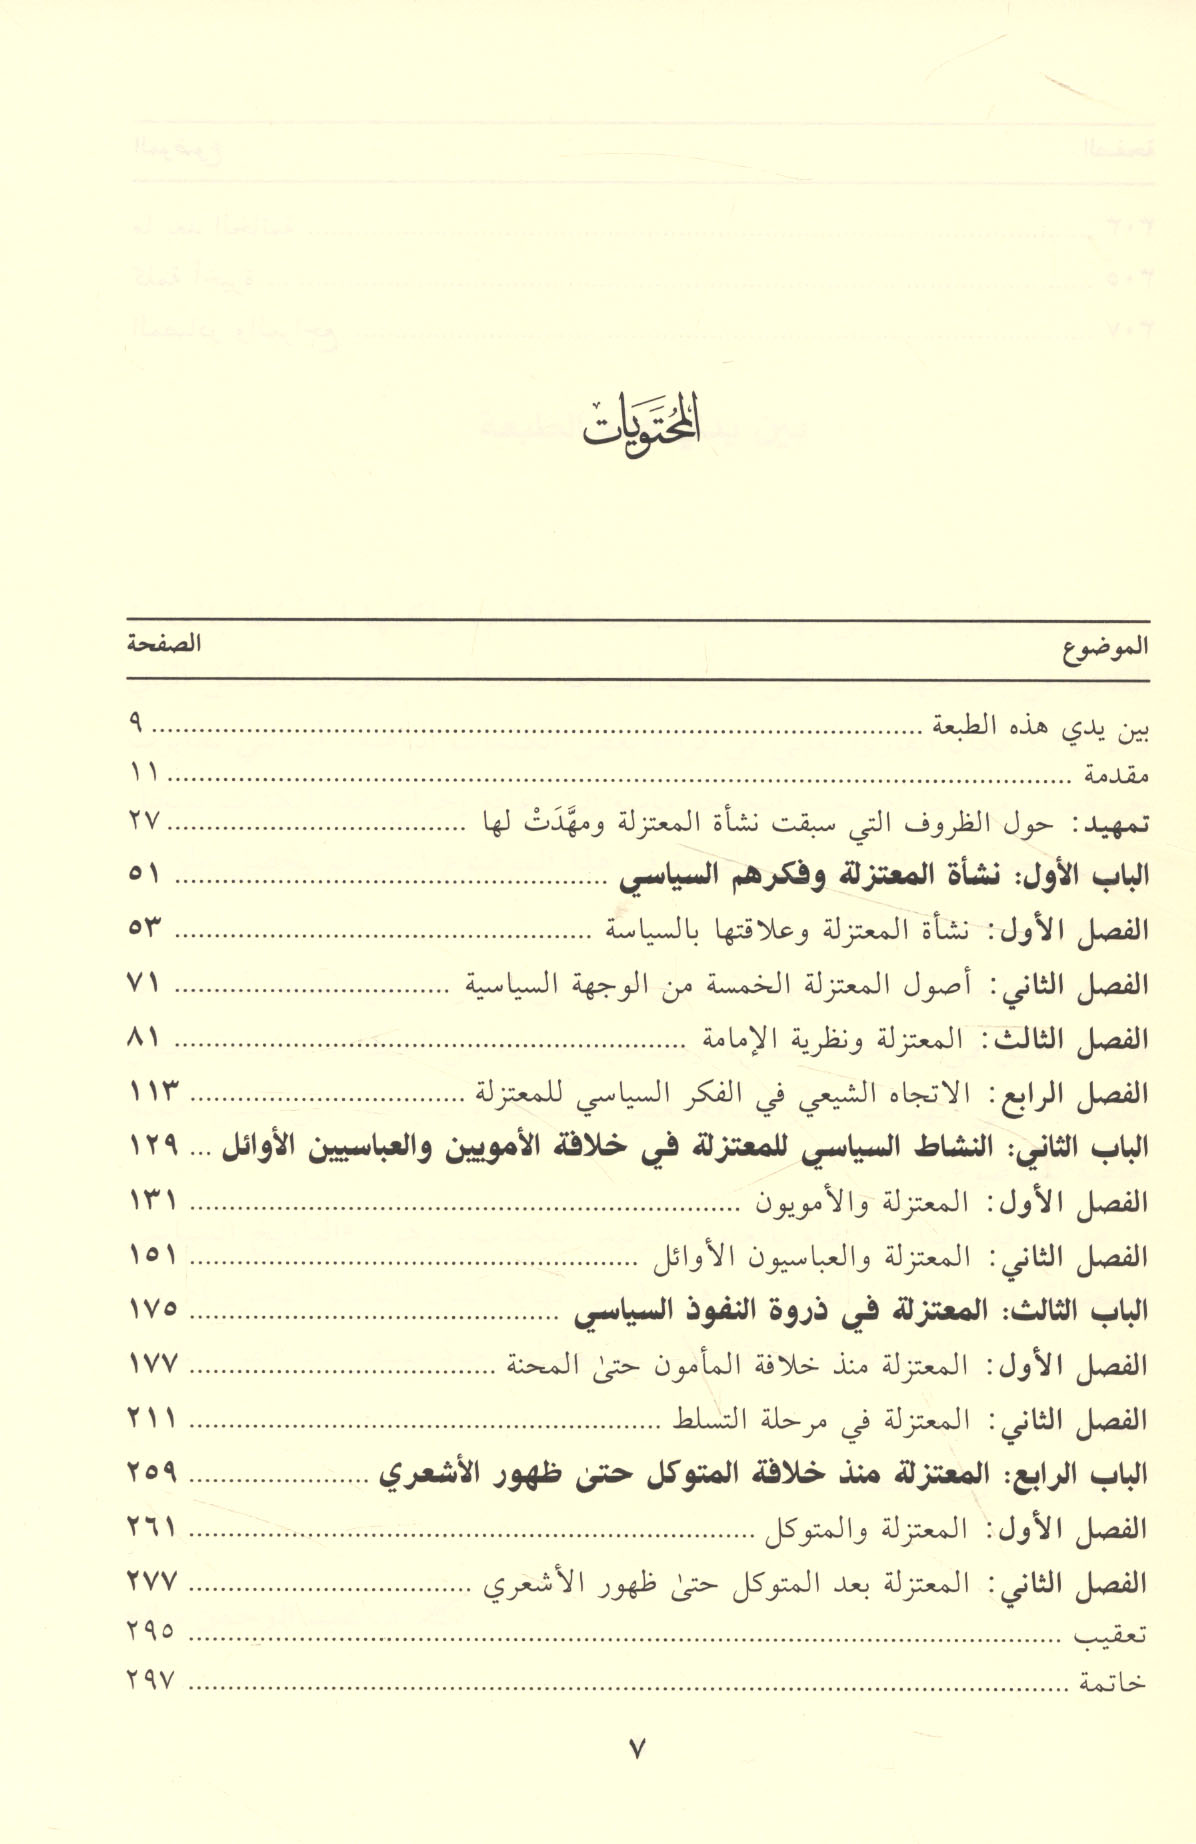 المحتويات
الموضوع الصفحة
بين يدي هذه الطبعة ........ ٩
مقدمة ........ ١١
تمهيد: حول الظروف التي سبقت نشأة المعتزلة ومهَّدَتْ لها ........ ٢٧
الباب الأول: نشأة المعتزلة وفكرهم السياسي ........ ٥١
الفصل الأول: نشأة المعتزلة وعلاقتها بالسياسة ........ ٥٣
الفصل الثاني: أصول المعتزلة الخمسة من الوجهة السياسية ........ ٧١
الفصل الثالث: المعتزلة ونظرية الإمامة ........ ٨١
الفصل الرابع: الاتجاه الشيعي في الفكر السياسي للمعتزلة ........ ١١٣
الباب الثاني: النشاط السياسي للمعتزلة في خلافة الأمويين والعباسيين الأوائل ... ١٢٩
الفصل الأول: المعتزلة والأمويون ........ ١٣١
الفصل الثاني: المعتزلة والعباسيون الأوائل ........ ١٥١
الباب الثالث: المعتزلة في ذروة النفوذ السياسي ........ ١٧٥
الفصل الأول: المعتزلة منذ خلافة المأمون حتىٰ المحنة ........ ١٧٧
الفصل الثاني: المعتزلة في مرحلة التسلط ........ ٢١١
الباب الرابع: المعتزلة منذ خلافة المتوكل حتىٰ ظهور الأشعري ........ ٢٥٩
الفصل الأول: المعتزلة والمتوكل ........ ٢٦١
الفصل الثاني: المعتزلة بعد المتوكل حتىٰ ظهور الأشعري ........ ٢٧٧
تعقيب ........ ٢٩٥
خاتمة ........ ٢٩٧
٧